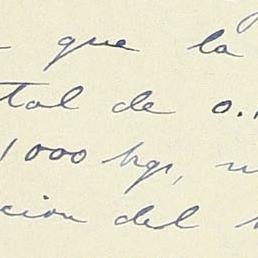 que la
tal de 0.
1000 kgs,
ción del